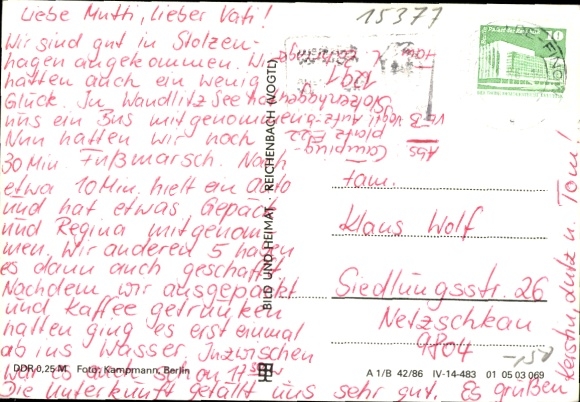 Liebe Mutti, lieber Vati!
15377
Wir sind gut in Stolzen-
hagen angekommen. Wir
hatten auch ein wenig
Glück. In Wandlitz See hat
uns ein Bus mitgenommen.
Nun hatten wir noch
30 Min. Fußmarsch. Nach
etwa 10 Min. hielt ein Auto
und hat etwas Gepäck
und Regina mitgenom
men. Wir anderen 5 haben
es dann auch geschafft.
Nachdem wir ausgepackt
und Kaffee getrunken
hatten ging es erst einmal
ab ins Wasser. Inzwischen
war es auch schon 17
Die Unterkunft gefällt uns sehr gut. Es grüßen
Kerstin, Lutz u. Tom!
Abs Camping-
platz
Stolzenhagen
1291
Fam.
Klaus Wolf
Siedlungsstr. 26
Netzschkau
9804
-,50
10
BILD UND HEIMAT REICHENBACH (VOGTL)
DDR 0,25 M Foto: Kampmann, Berlin
A 1/B 42/86 IV-14-483 01 05 03 069